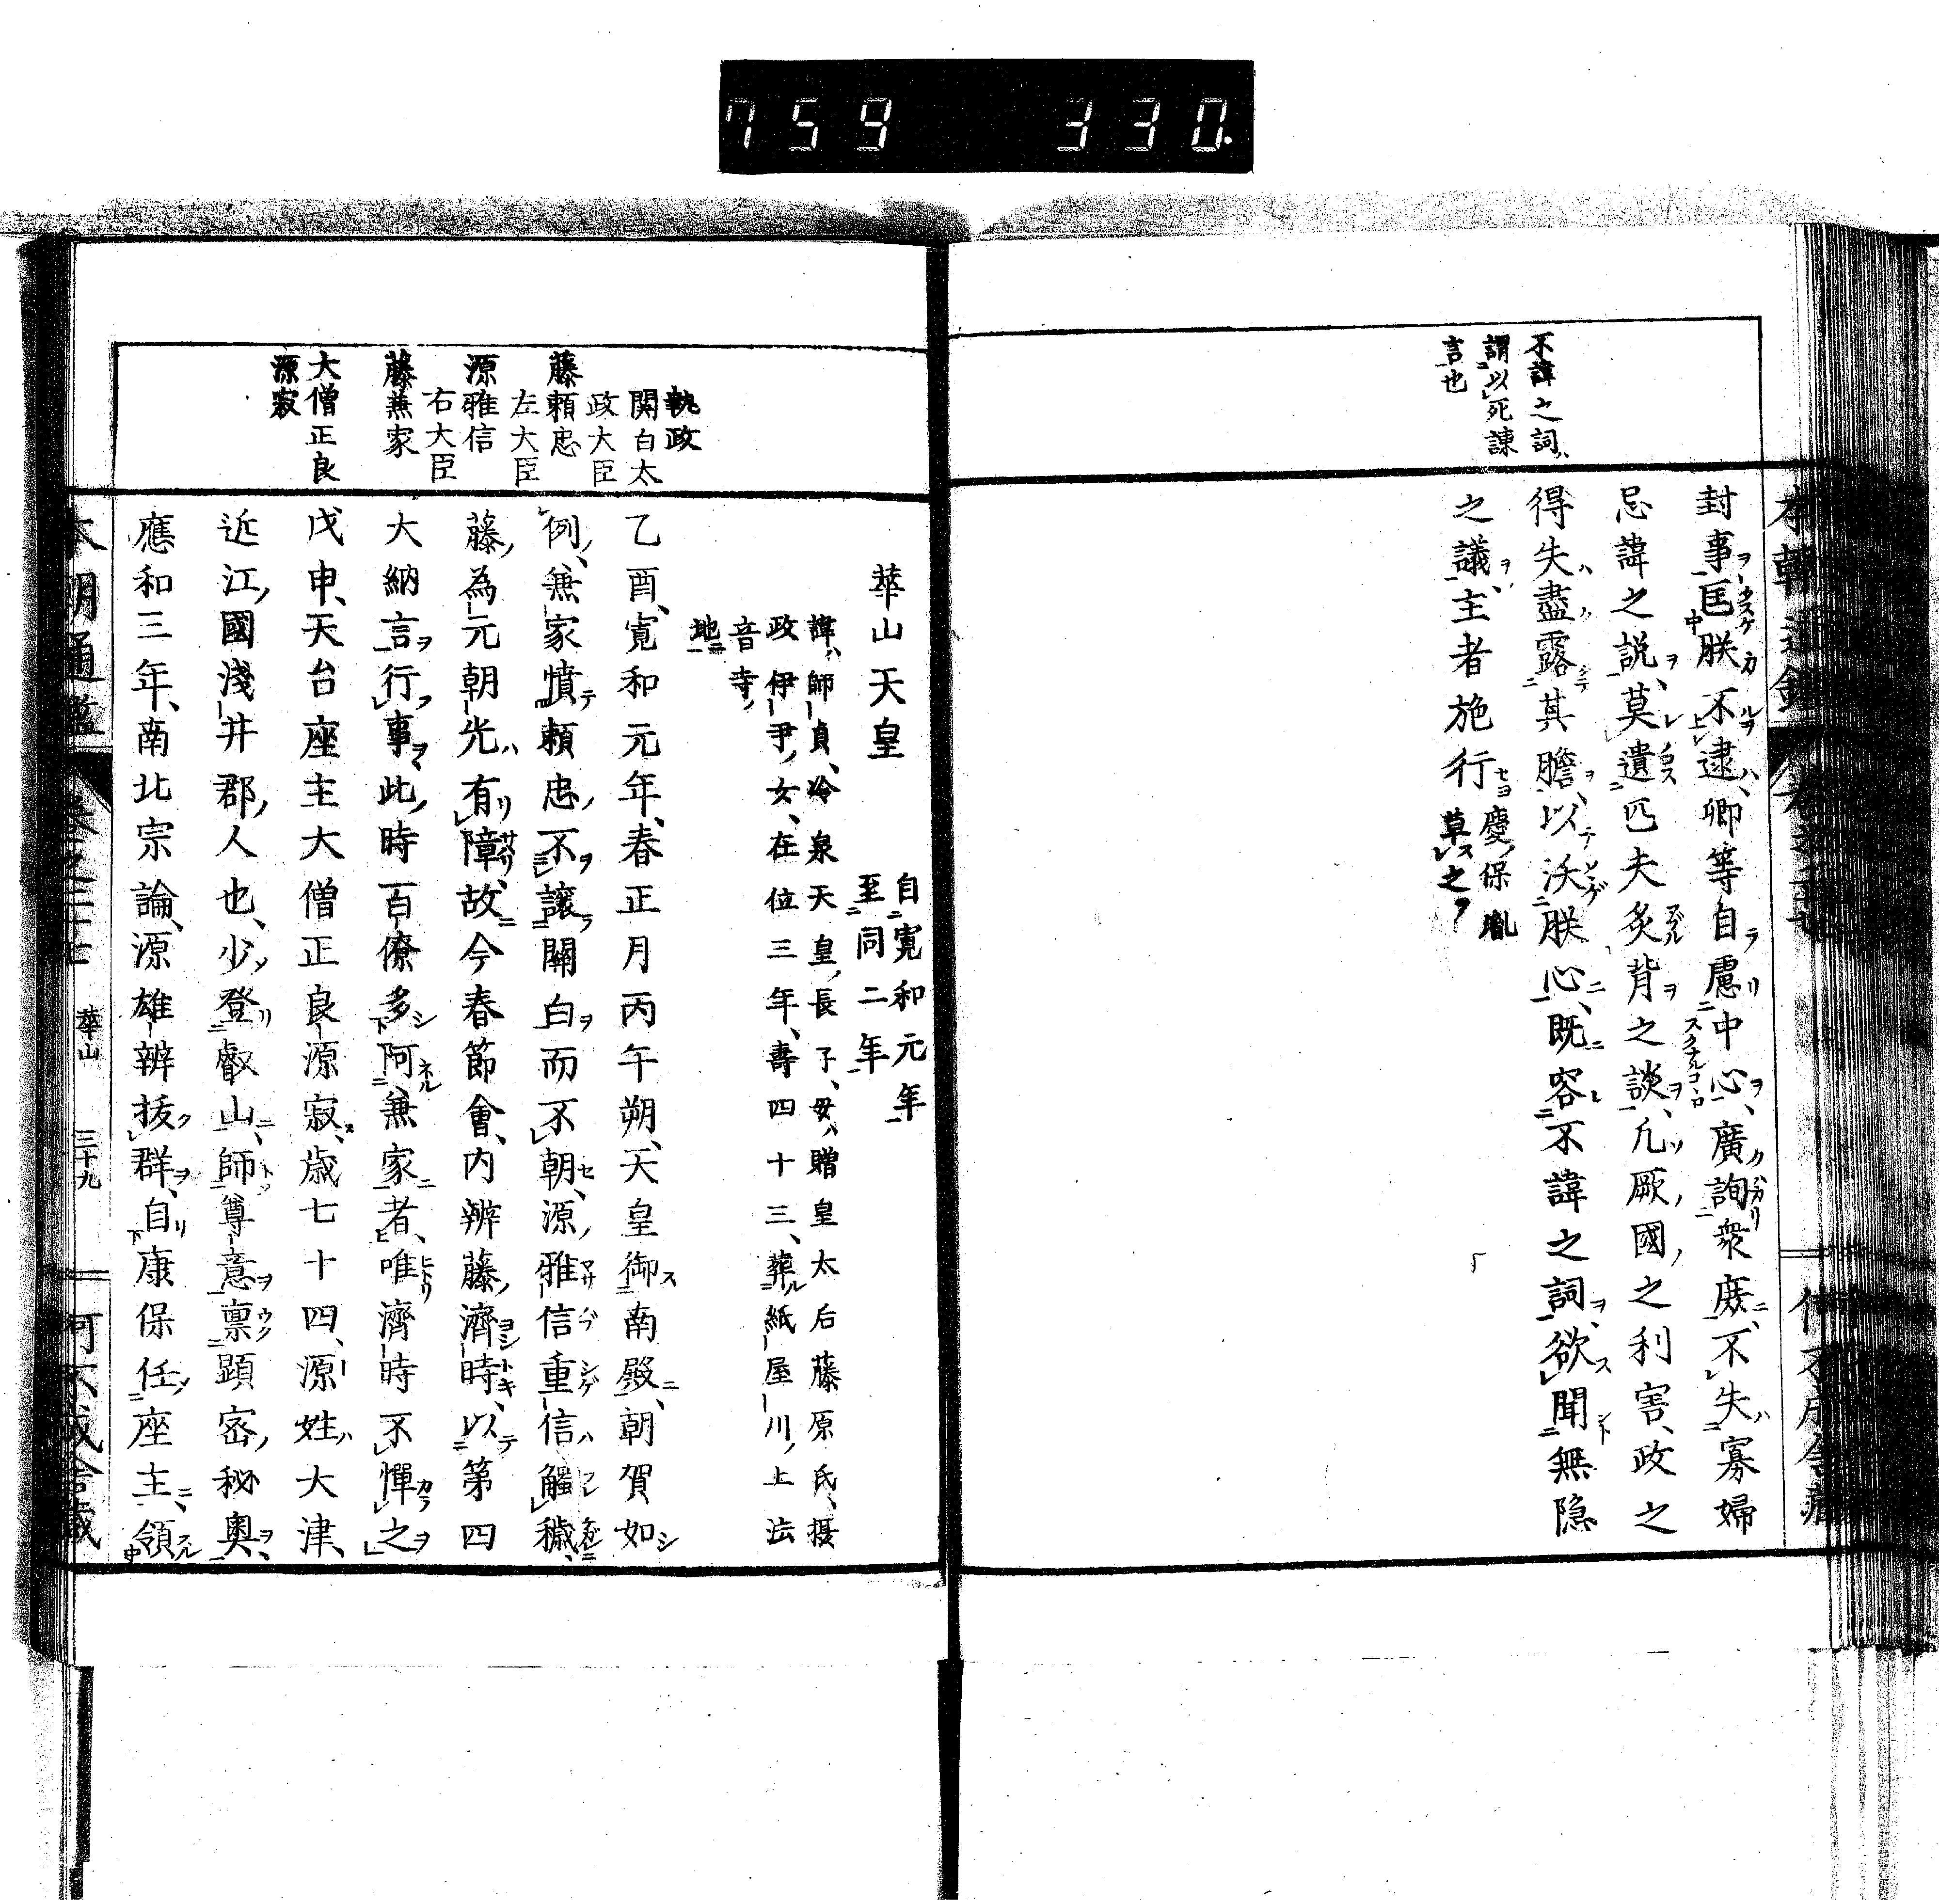 759 330.
不諱之詞
謂以死諫
言也
封事匡朕不逮卿等自慮中心廣詢衆庶不失寡婦
忌諱之説莫遺匹夫炙背之談凢厥國之利害政之
得失盡露其膽以沃朕心既容不諱之詞欲聞無隐
之議主者施行
慶保胤
草之
華山天皇
自寛和元年
至同二年
諱師貞冷泉天皇長子母贈皇太后藤原氏摂
政伊尹女在位三年壽四十三葬紙屋川上法
音寺
地
執政
関白太
政大臣
藤頼忠
左大臣
源雅信
右大臣
藤兼家
大僧正良
源寂
乙酉寛和元年春正月丙午朔天皇御南殿朝賀如
例兼家憤頼忠不譲關白而不朝源雅信重信觸穢
藤為元朝光有障故今春節會内辨藤濟時以第四
大納言行事此時百僚多阿兼家者唯濟時不憚之
戊申天台座主大僧正良源寂歳七十四源姓大津
近江國淺井郡人也少登叡山師尊意禀顕宻秘奥
應和三年南北宗論源雄辨抜群自康保任座主領
本朝通鑑 卷之二十七 華山 三十九